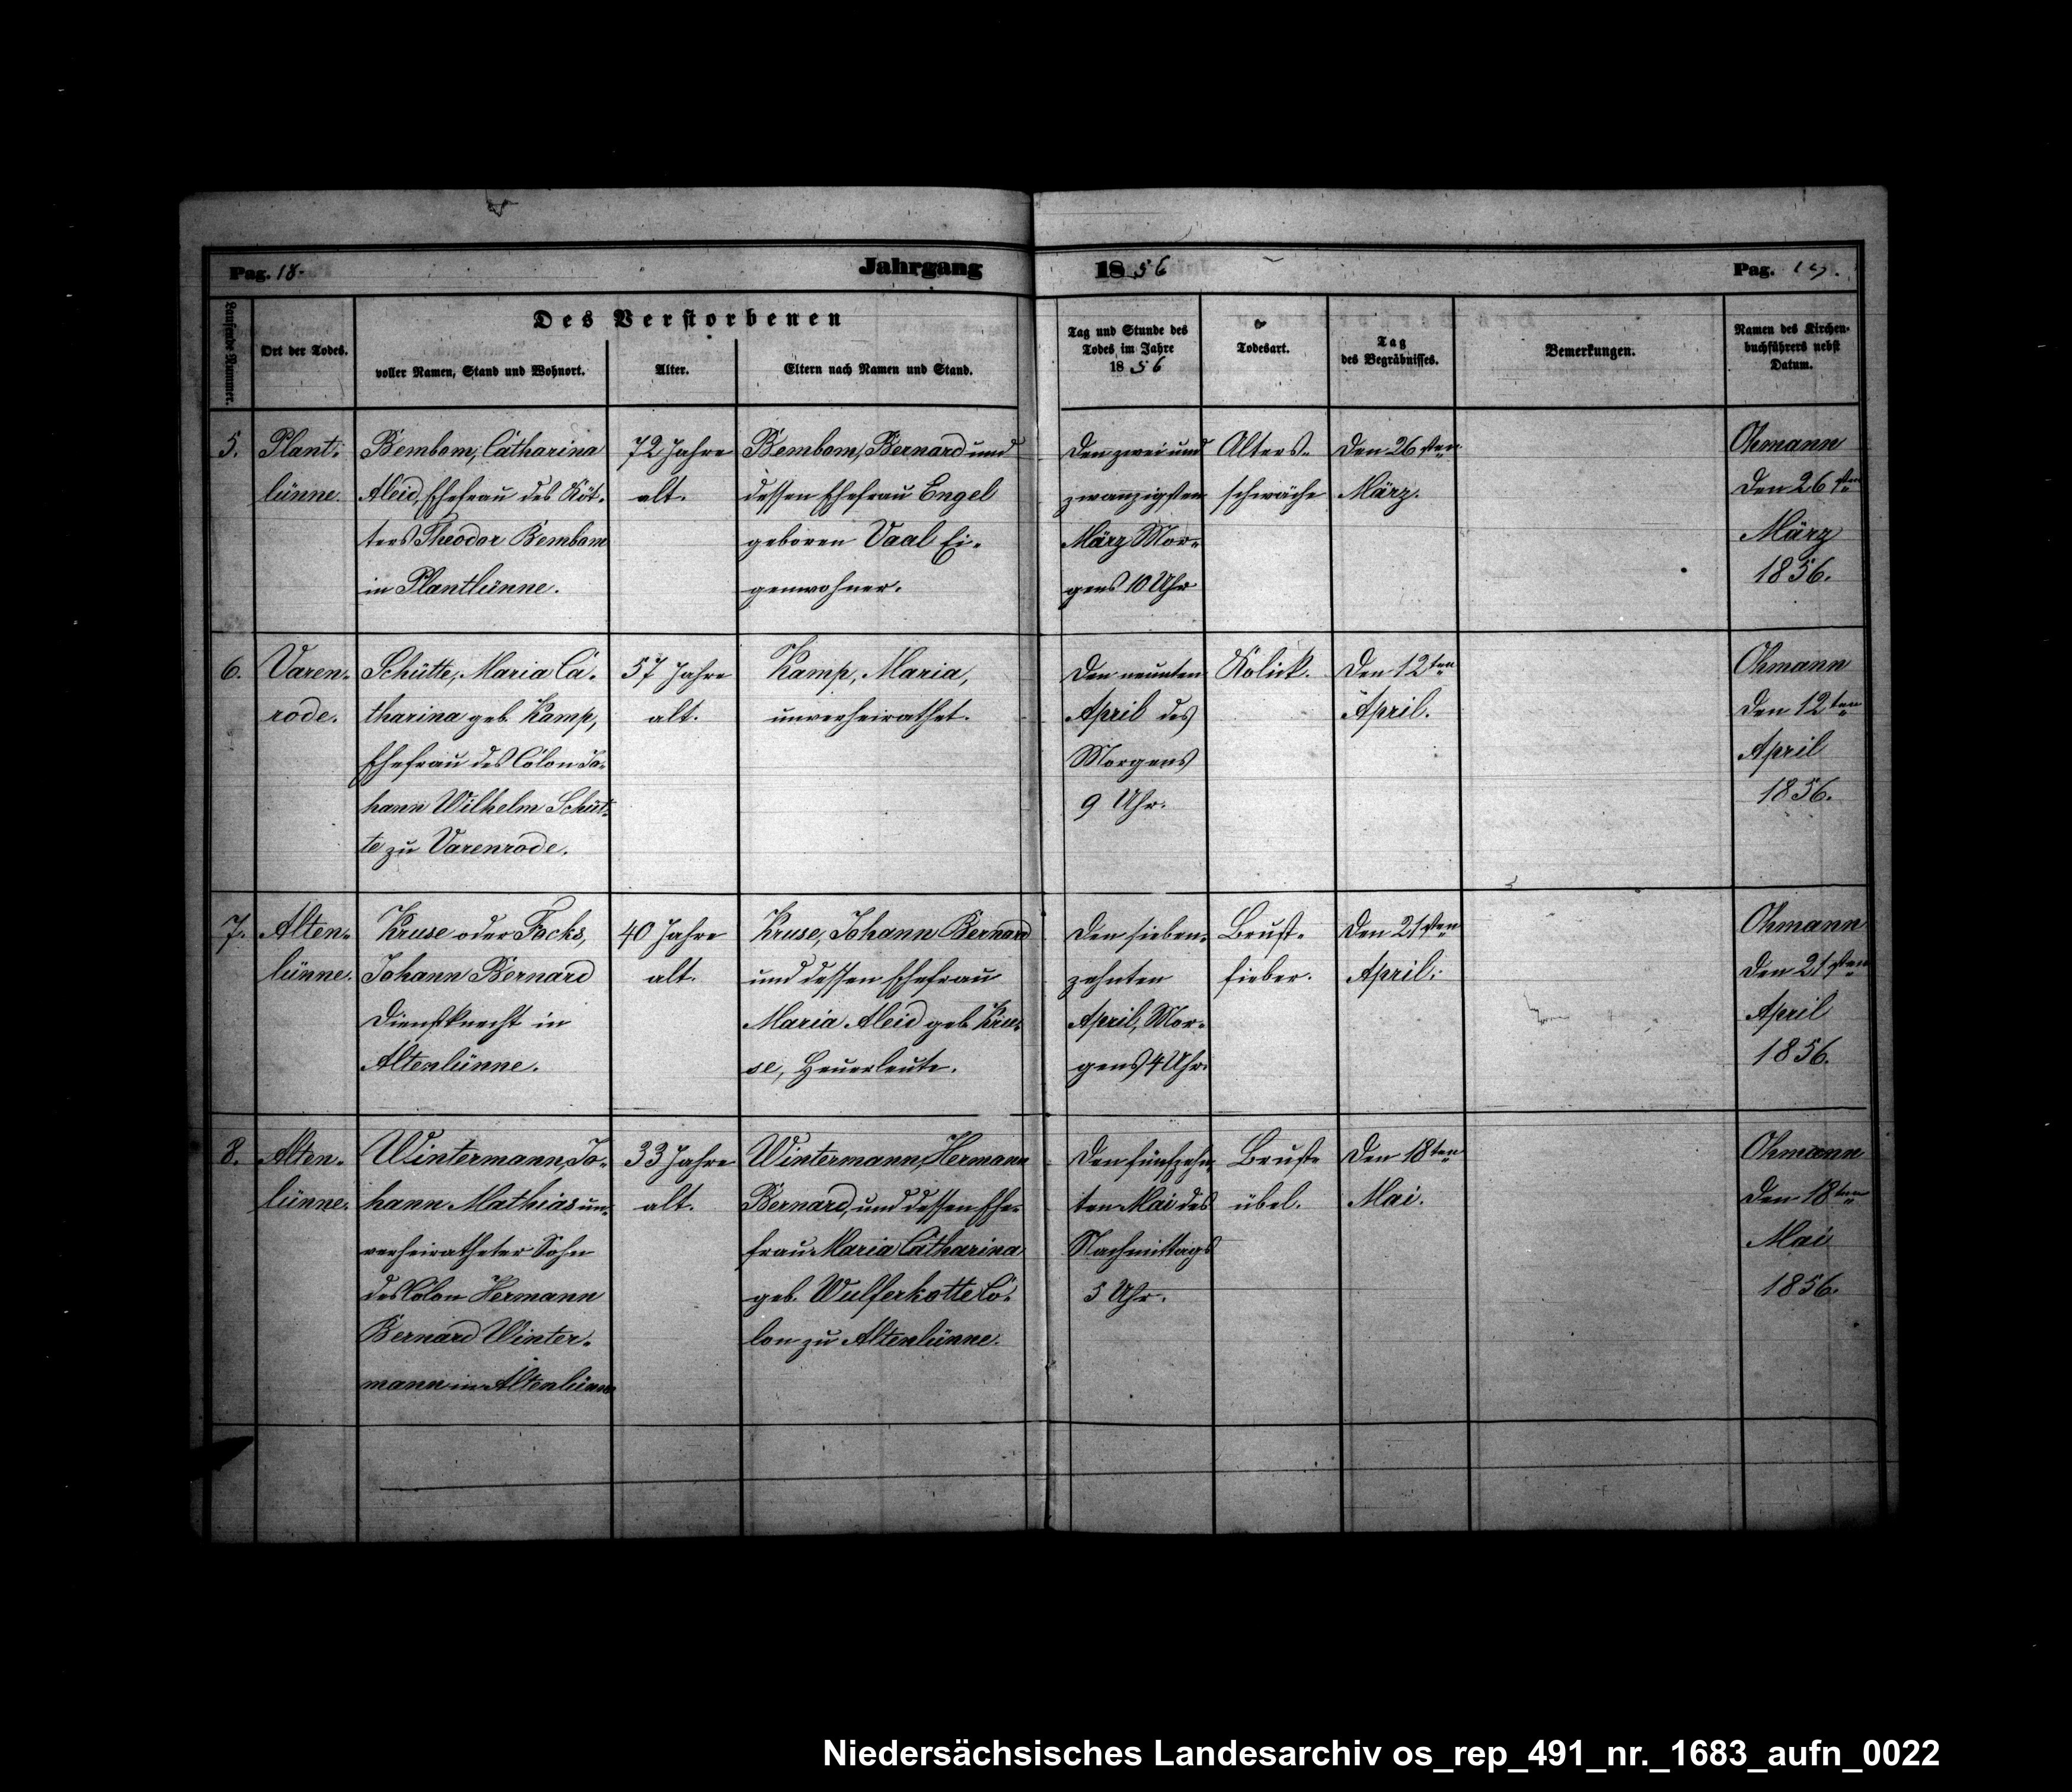 Pag. 18.
Jahrgang
1856
Pag. 19.
Laufende Nummer.
Ort der Todes.
Des Verstorbenen
voller Namen, Stand und Wohnort.
Alter.
Eltern nach Namen und Stand.
Tag und Stunde des
Todes im Jahre
1856
Todesart.
Tag
des Begräbnisses.
Bemerkungen.
Namen des Kirchen-
buchführers nebst
Datum.
5.
Plant-
lünne.
Bembom, Catharina
Aleid, Ehefrau des Köt-
ters Theodor Bembom
in Plantlünne.
72 Jahre
alt.
Bembom, Bernard und
dessen Ehefrau Engel
geboren Vaal Ei-
genwohner.
Den zwei und
zwanzigsten
März Mor-
gens 10 Uhr
Alters-
schwäche
Den 26sten
März.
Ohmann
Den 26sten
März
1856.
6.
Varen-
rode.
Schütte, Maria Ca-
tharina geb. Kamp,
Ehefrau des Colon Jo-
hann Wilhelm Schüt-
te zu Varenrode.
57 Jahre
alt.
Kamp, Maria,
unverheirathet.
Den neunten
April des
Morgens
9 Uhr.
Kolick.
Den 12ten
April.
Ohmann
Den 12ten
April
1856.
7.
Alten-
lünne.
Kruse oder Focks,
Johann Bernard
Dienstknecht in
Altenlünne.
40 Jahre
alt.
Kruse, Johann Bernard
und dessen Ehefrau
Maria Aleid geb. Kru-
se, Heuerleute.
Den sieben-
zehnten
April, Mor-
gens 4 Uhr.
Brust-
fieber.
Den 21sten
April.
Ohmann
Den 21sten
April
1856.
8.
Alten-
lünne.
Wintermann, Jo-
hann Mathias un-
verheiratheter Sohn
des Colon Hermann
Bernard Winter-
mann in Altenlünne
33 Jahre
alt.
Wintermann, Hermann
Bernard, und dessen Ehe-
frau Maria Catharina
geb. Wulferkotte Co-
lon zu Altenlünne.
Den fünfzehn-
ten Mai des
Nachmittags
5 Uhr.
Brust-
übel.
Den 18ten
Mai.
Ohmann
Den 18ten
Mai
1856.
Niedersächsisches Landesarchiv os_rep_491_nr._1683_aufn_0022